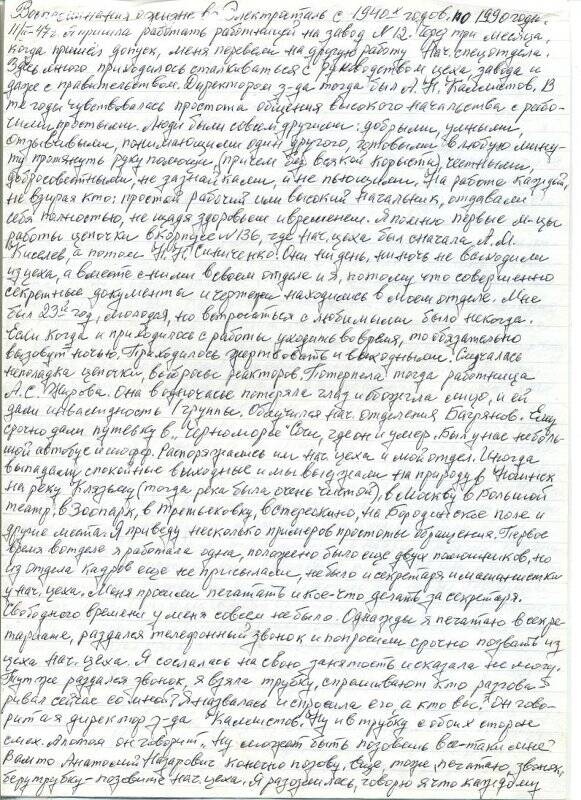 Воспоминания о жизни в г. Электросталь с 1940х годов по 1990 годы.
Я пришла работать работницей на завод №12. Через три месяца,
когда пришёл допуск, меня перевели на другую работу Нач. спецотдела.
Здесь много приходилось сталкиваться с руководством цеха, завода и
даже с правительством. Директором з-да тогда был А.Н. Каллистов. В
те годы чувствовалась простота общения высокого начальства с рабо-
чими простыми. Люди были совсем другими: добрыми, умными,
отзывчивыми, понимающими один другого, готовыми в любую мину-
ту протянуть руку помощи (причем без всякой корысти), честными,
добросовестными, не зазнайками, и не пьющими. На работе каждый,
не взирая кто: простой рабочий или высокий начальник, отдавали
себя полностью, не щадя здоровьем и временем. Я помню первые м-цы
работы цепочки в корпусе №136, где нач. цеха был сначала А.М.
Киселев, а потом Н.Н. Синиченко. Они ни день, ни ночь не выходили
из цеха, а вместе с ними в своем отделе и я, потому что совершенно
секретные документы и чертежи находились в моем отделе. Мне
был 23й год, молодая, но встречаться с любимыми было некогда.
Если когда и приходилось с работы уходить во время, то обязательно
вызовут ночью. Приходилось жертвовать и выходными. Случалась
неполадка цепочки, выбросы реакторов. Потерпела тогда работница
А.С. Жирова. Она в одночасье потеряла глаз и обожгла лицо, и ей
дали инвалидность группы. Облучился нач. отделения Багрянов. Ему
срочно дали путевку в „Черноморье" Сочи, где он и умер. Был у нас неболь-
шой автобус и шофер. Распоряжались им нач. цеха и мой отдел. Иногда
выпадали спокойные выходные и мы выезжали на природу в Ногинск
на реку Клязьму (тогда река была очень чистой), в Москву в Большой
театр, в Зоопарк, в Третьяковку, в на Бородинское поле и
другие места. Я приведу несколько примеров простоты обращения. Первое
время в отделе я работала одна, положено было еще двух помощников, но
из отдела кадров еще не присылали, не было и секретаря и машинистки
у нач. цеха. Меня просили печатать и кое-что делать за секретаря.
Свободного времени у меня совсем не было. Однажды я печатаю в секре-
тариате, раздался телефонный звонок и попросили срочно позвать из
цеха нач. цеха. Я сослалась на свою занятость и сказала не могу.
Тут же раздался звонок, я взяла трубку, спрашивают кто разгова-
ривал сейчас со мной? Я назвалась и спросила его, а кто вы? Он гово-
рит а я директор з-да Каллистов. Ну и в трубку с обоих сторон
смех. А потом он говорит „Ну может быть позовешь все-таки мне?
Вам то Анатолий Назарович конечно позову. Еще, тоже, печатаю, звонок,
беру трубку - позовите нач. цеха. Я разозлилась, говорю я что каждому